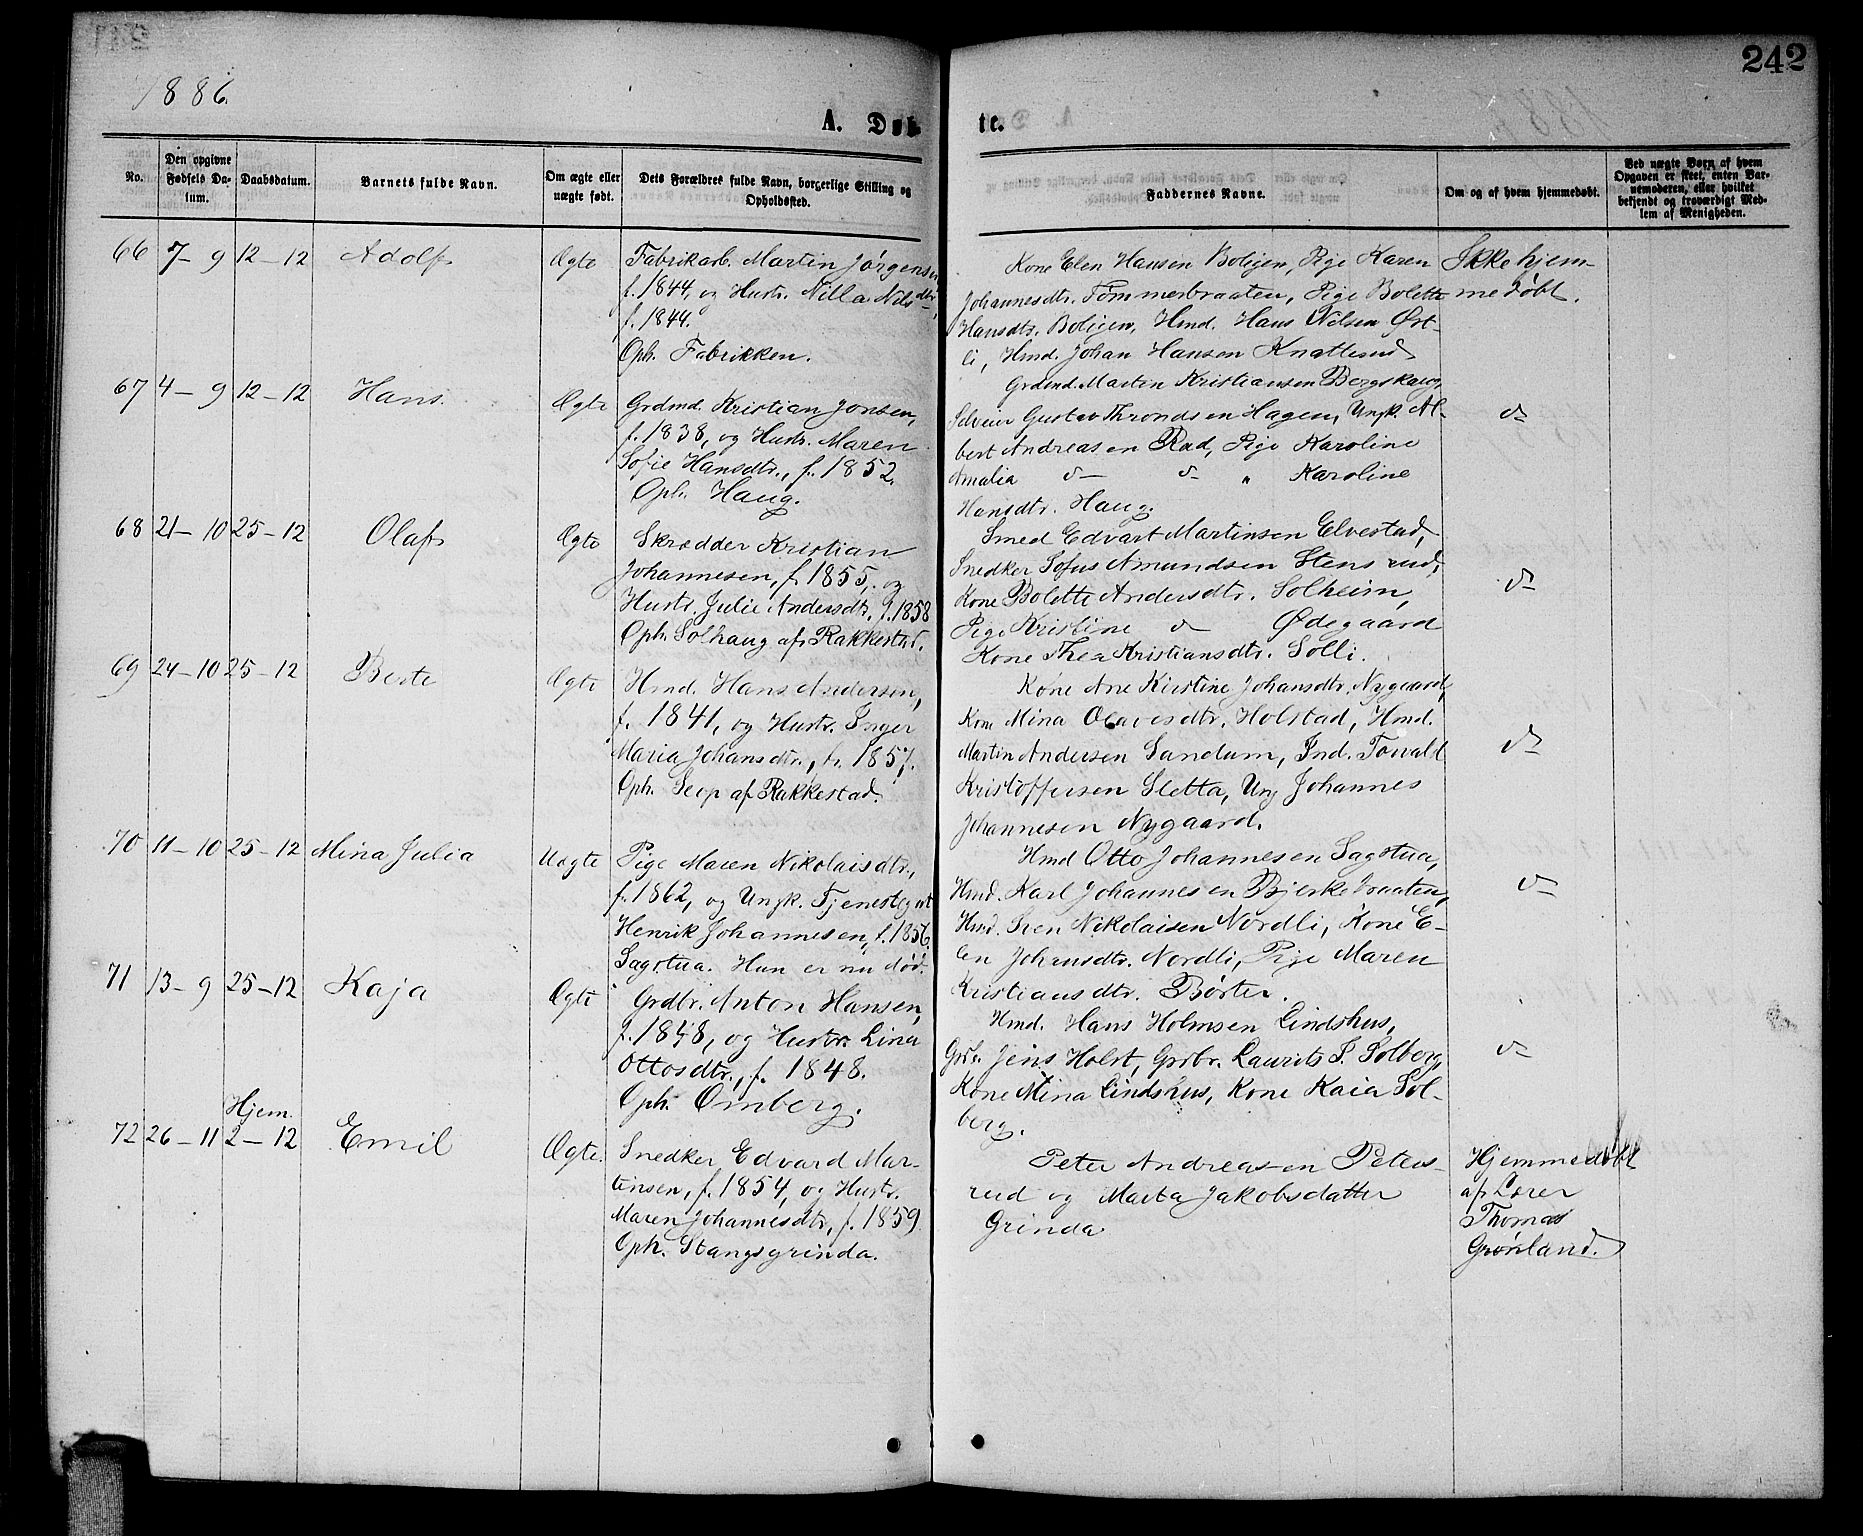 242
1886.
A. Døb-
te.
No.
Den opgivne Fødsels Da-tum.
Daabsdatum.
Barnets fulde Navn.
Om ægte eller uægte født.
Dets Forældres fulde Navn, borgerlige Stilling og Opholdssted.
Faddernes Navne.
Om og af hvem hjemmedøbt.
Ved uægte Børn af hvem Opgaven er skeet, enten Bar-nemoderen, eller hvilket bekjendt og troværdigt Med-lem af Menigheden.
66 7-9 12-12 Adolf Ægte
Fabrikarb. Martin Jørgensen
f. 1844, og Hustr. Nilla Nilsdtr.
f. 1844.
Oph. Fabrikken.
Kone Elen Hansen Boligen, Pige Karen
Johannesdtr. Tømmerbraaten, Pige Bolette
Hansdtr. Boligen, Hmd. Hans Nilsen Øst-
li, Hmd. Johan Hansen Knatterud
Ikke hjem-
medøbt.
67 4-9 12-12 Hans. Ægte
Grdmd. Kristian Jonsen,
f. 1838, og Hustr. Maren
Sofie Hansdtr., f. 1852.
Oph. Haug.
Grdmd. Marten Kristiansen Bergskaug,
Selveier Gustav Throndsen Hagen, Ungk. Al-
bert Andreasen Rud, Pige Karoline
Amalia do do " Karoline
Hansdtr. Haug.
do
68 21-10 25-12 Olaf Ægte
Skrædder Kristian
Johannesen, f. 1855, og
Hustr. Julie Andersdtr. f. 1858
Oph. Solhaug af Rakkestad.
Smed Edvart Martinsen Elvestad,
Snedker Sofus Amundsen Stensrud,
Kone Bolette Andersdtr. Solheim,
Pige Kristine do Ødegaard
Kone Thea Kristiansdtr. Solli.
do
69 24-10 25-12 Berte Ægte
Hmd. Hans Andersen,
f. 1841, og Hustr. Inger
Maria Johansdtr., f. 1857.
Oph. Seop af Rakkestad.
Kone Ane Kirstine Johansdtr. Nygaard,
Kone Mina Olavesdtr. Holstad, Hmd.
Martin Andersen Sandum, Ind. Towald
Kristoffersen Sletta, Ung Johannes
Johannesen Nygaard.
do
70 11-10 25-12 Mina Julia Uægte
Pige Maren Nikolaisdtr.,
f. 1862, og Ungk. Tjenestegut
Henrik Johannesen, f. 1856.
Sagstua. Hun er nu død.
Hmd Otto Johannesen Sagstua,
Hmd. Karl Johannesen Bjerkebraaten,
Hmd. Sven Nikolaisen Nordli, Kone E-
len Johansdtr. Nordli, Pige Maren
Kristiansdtr. Børter.
do
71 13-9 25-12 Kaja Ægte
Grdbr. Anton Hansen,
f. 1848, og Hustr. Lina
Ottosdtr., f. 1848.
Oph. Omberg.
Hmd. Hans Holmsen Lindshus,
Grdb. Jens Holst, Grbr. Laurits S. Solberg,
Kone Mina Lindshus, Kone Kaia Sol-
berg.
do
Hjem.
72 26-11 2-12 Emil Ægte.
Snedker Edvard Mar-
tinsen, f. 1854, og Hustr.
Maren Johannesdtr., f. 1859
Oph. Stangsgrinda.
Peter Andreasen Peters-
rud og Marta Jakobsdatter
Grinda
Hjemmedøbt
af Lærer
Thomas
Grønland.